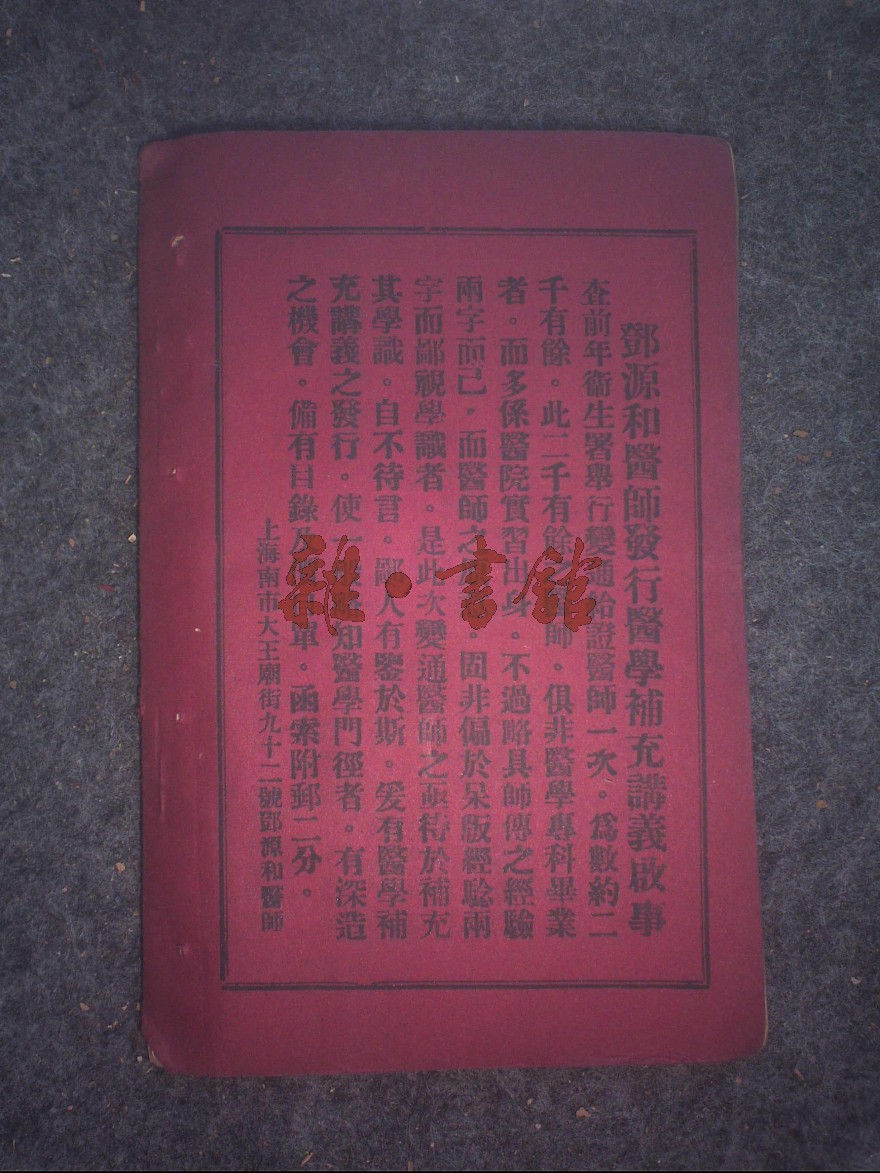 鄧源和醫師發行醫學補充講義啟事
查前年衛生署舉行變通給證醫師一次。爲數約二
千有餘。此二千有餘之醫師。俱非醫學專科畢業
者。而多係醫院實習出身。不過略具師傳之經驗
兩字而已。而醫師之。固非偏於呆版經驗兩
字而鄙視學識者。是此次變通醫師之亟待於補充
其學識。自不待言。鄙人有鑒於斯。爰有醫學補
充講義之發行。使一知醫學門徑者。有深造
之機會。備有目錄及單。函索附郵二分。
上海南市大王廟街九十二號鄧源和醫師
雜·書館